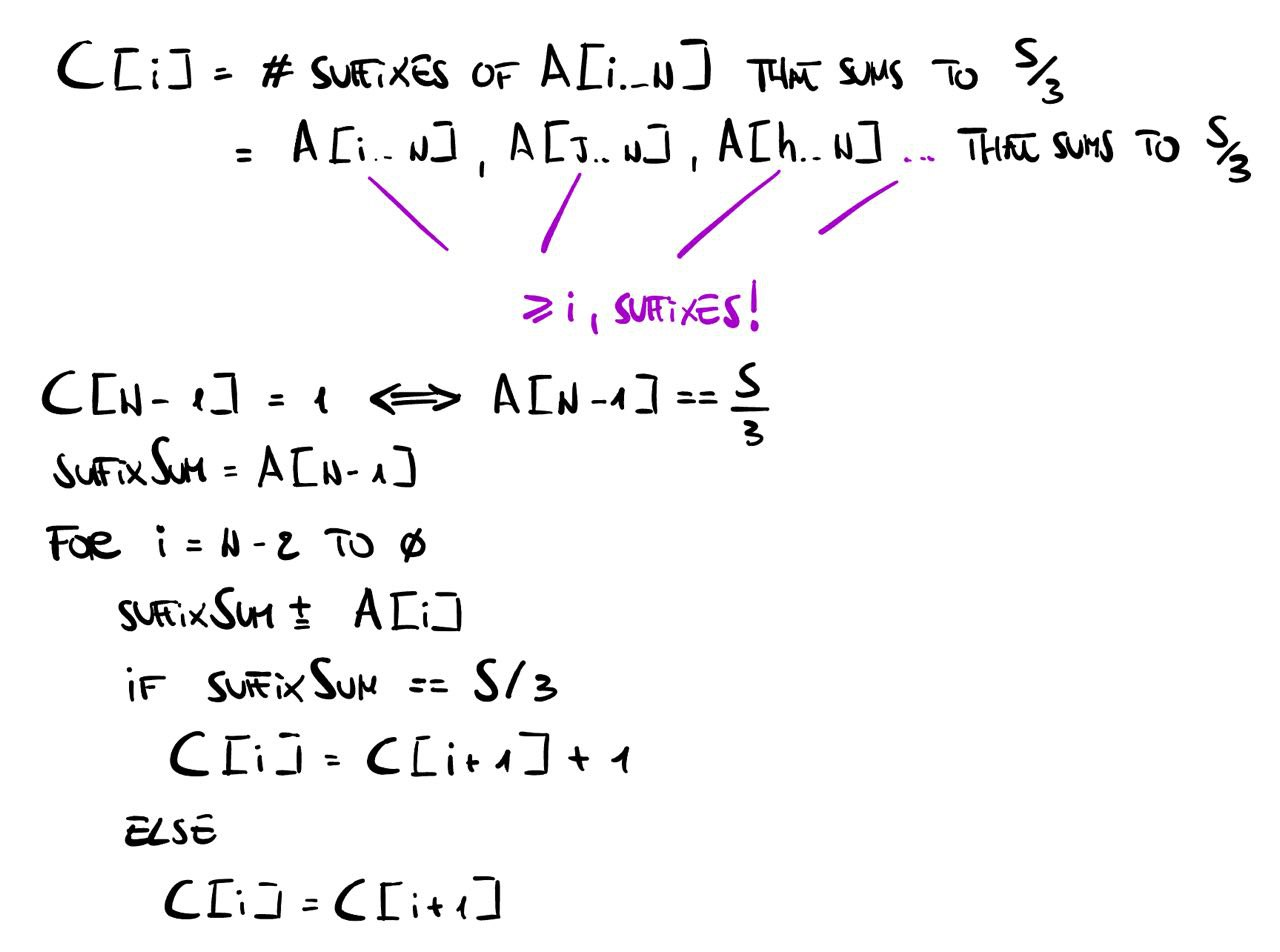 C[i] = # SUFFIXES OF A[i..N] THAT SUMS TO S/3
= A[i.. N], A[J.. N], A[h.. N] ... THAT SUMS TO S/3
≥ i, SUFFIXES!
C[N-1] = 1 ⟺ A[N-1] == S/3
SUFFIXSUM = A[N-1]
FOR i = N-2 TO Ø
SUFFIXSUM ± A[i]
iF SUFFIXSUM == S/3
C[i] = C[i+1] + 1
ELSE
C[i] = C[i+1]